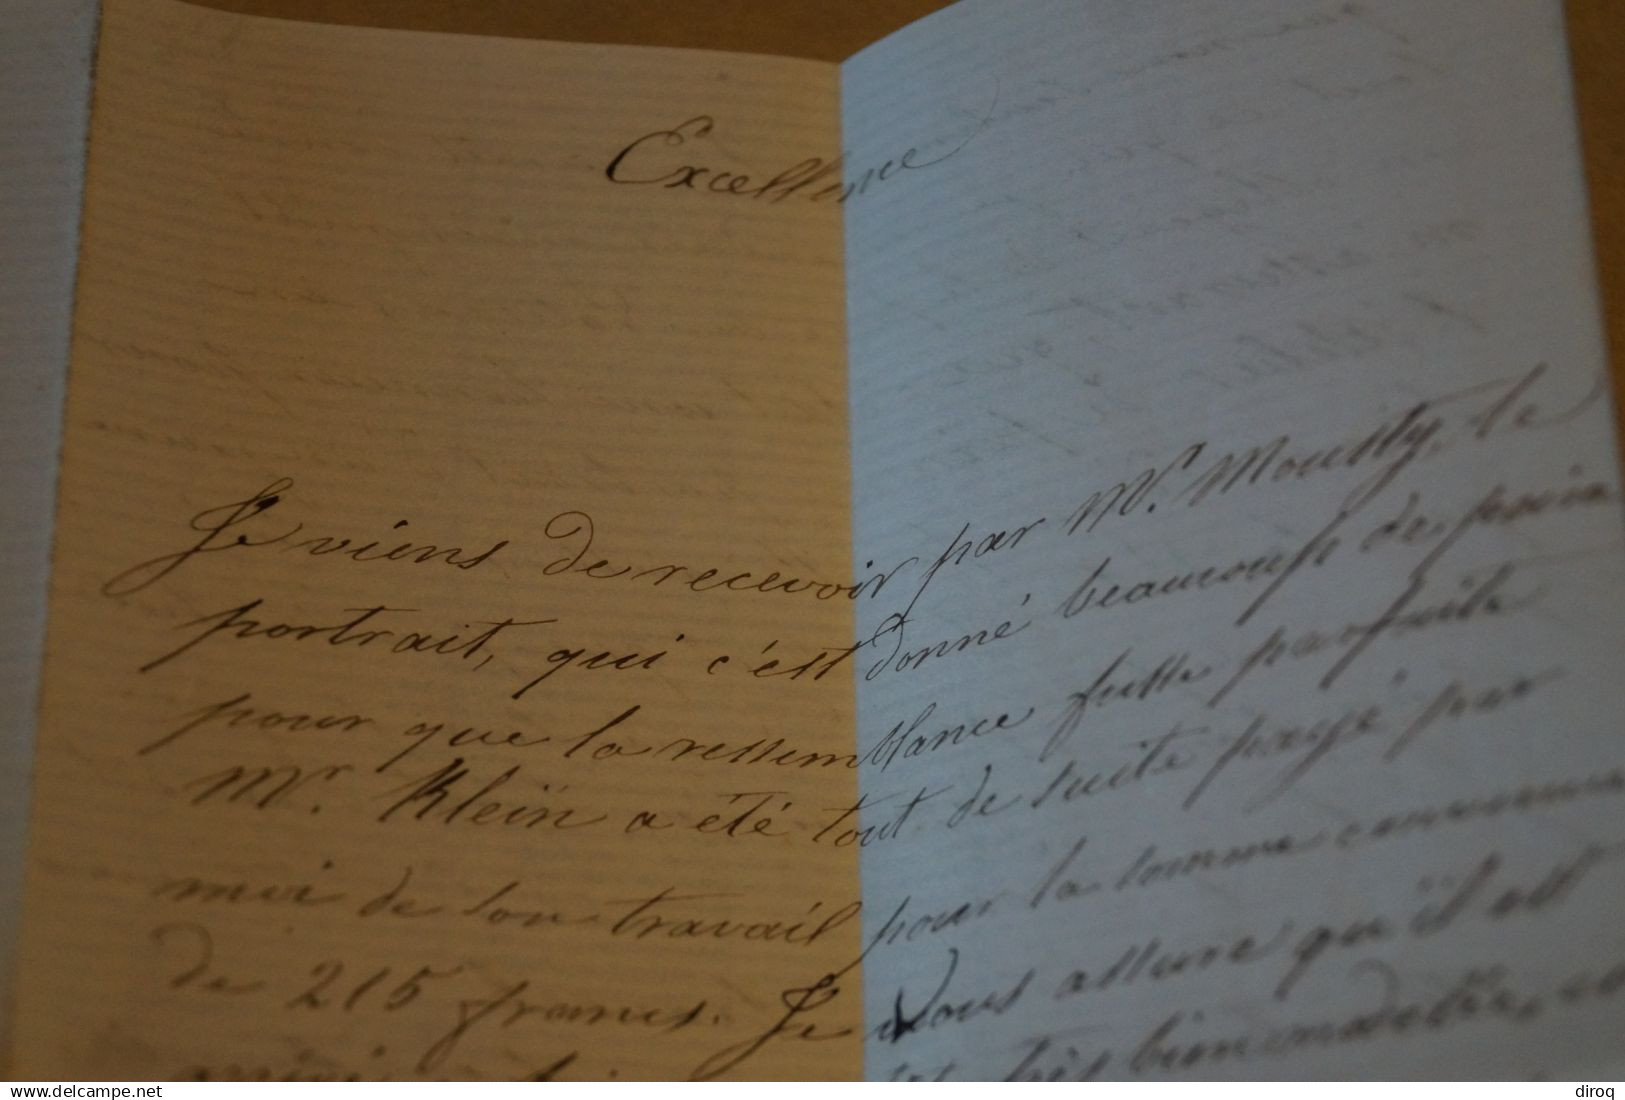 Excellence
Je viens de recevoir par Mr. Moussty, le
portrait, qui c'est donné beaucoup de peine
pour que la ressemblance fusse parfaite
Mr. Kleïn a été tout de suite payé par
moi de son travail pour la somme convenue
de 215 francs. Je vous assure qu'il est
très bien
delcampe.net
diroq